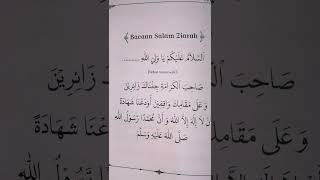 Bacaan Salam Ziarah
اَلسَّلَامُ عَلَيْكُمْ يَا وَلِيَّ اللهِ ..........
صَاحِبَ الْكَرَامَةِ جِئْنَاكَ زَائِرِيْنَ
وَعَلَى مَقَامِكَ وَاقِفِيْنَ أَوْدَعْنَا شَهَادَةَ
أَنْ لَا إِلٰهَ إِلَّا اللهُ وَ أَنَّ مُحَمَّدًا رَسُوْلُ اللهِ
صَلَّى اللهُ عَلَيْهِ وَسَلَّمَ